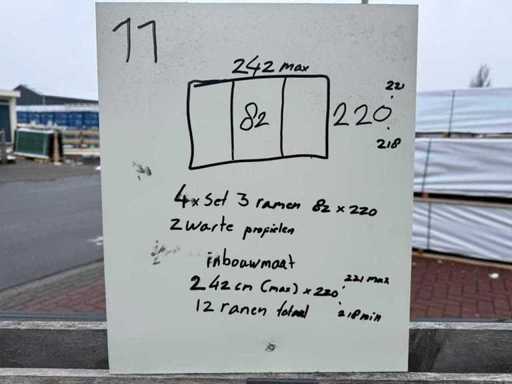 11
242 max
221
82
220
218
4x Set 3 ramen 82 x 220
Zwarte profielen
inbouwmaat
242 cm (max) x 220
221 max
218 min
12 ramen totaal